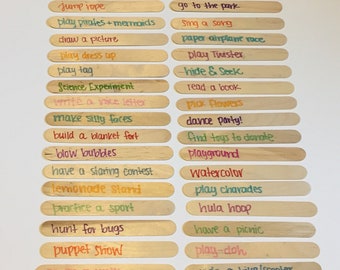 Jump rope
play pirates + mermaids
draw a picture
play dress up
play tag
Science Experiment
write a nice letter
make silly faces
build a blanket fort
blow bubbles
have a staring contest
lemonade stand
practice a sport
hunt for bugs
puppet show
go to the park
Sing a song
paper airplane race
play Twister
hide & Seek
read a book
pick flowers
dance party!
find toys to donate
playground
watercolor
play charades
hula hoop
have a picnic
play-doh